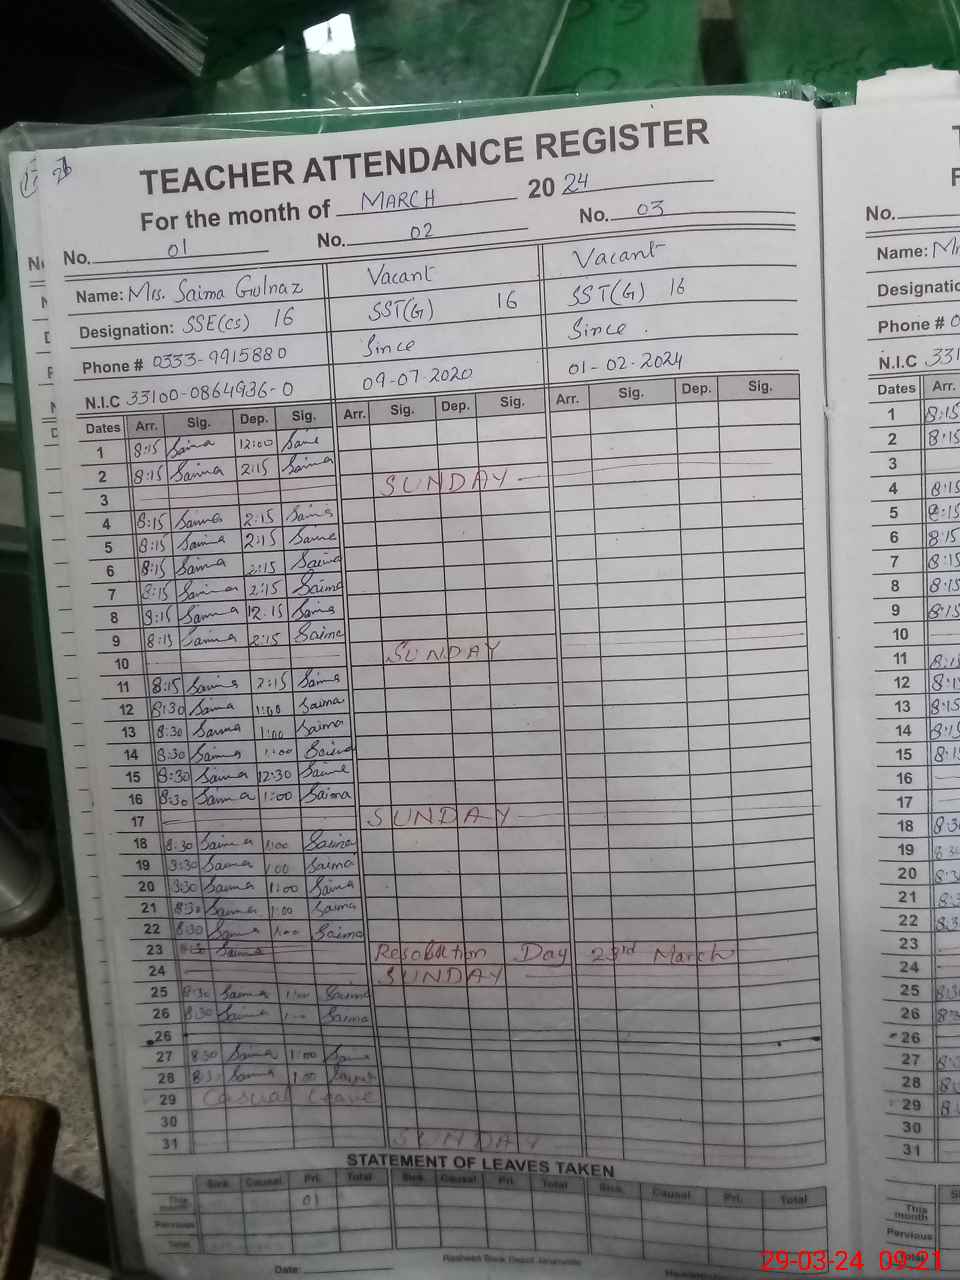 TEACHER ATTENDANCE REGISTER
For the month of MARCH 2024
No. 01 No. 02 No. 03
Name: Mrs. Saima Gulnaz Vacant Vacant
Designation: SSE(CS) 16 SST(G) 16 SST(G) 16
Phone # 0333-9915880 Since Since.
N.I.C 33100-0864936-0 09-07-2020 01-02-2024
Dates Arr. Sig. Dep. Sig. Arr. Sig. Dep. Sig. Arr. Sig. Dep. Sig.
1 8:15 Saima 12:00 Saima
2 8:15 Saima 2:15 Saima
3 SUNDAY
4 8:15 Saima 2:15 Saima
5 8:15 Saima 2:15 Saima
6 8:15 Saima 2:15 Saima
7 8:15 Saima 2:15 Saima
8 8:15 Saima 12:15 Saima
9 8:15 Saima 2:15 Saima
10 SUNDAY
11 8:15 Saima 2:15 Saima
12 8:30 Saima 1:00 Saima
13 8:30 Saima 1:00 Saima
14 8:30 Saima 1:00 Saima
15 8:30 Saima 12:30 Saima
16 8:30 Saima 1:00 Saima
17 SUNDAY
18 8:30 Saima 1:00 Saima
19 8:30 Saima 1:00 Saima
20 8:30 Saima 1:00 Saima
21 8:30 Saima 1:00 Saima
22 8:30 Saima 1:00 Saima
23 Saima Resolution Day 23rd March
24 SUNDAY
25 8:30 Saima 1:00 Saima
26 8:30 Saima Saima
26
27 8:30 Saima 1:00 Saima
28 Saima 1:00 Saima
29 Casual Leave
30
31 SUNDAY
STATEMENT OF LEAVES TAKEN
Sick. Causal Pri. Total Sick. Causal Pri. Total Sick. Causal Pri. Total
This month 01
Pervious
Total
Date:
No.
Name:
Designatio
Phone # 0
N.I.C 331
Dates Arr.
1 8:15
2 8:15
3
4 8:15
5 8:15
6 8:15
7 8:15
8 8:15
9 8:15
10
11 8:15
12 8:15
13 8:15
14 8:15
15 8:15
16
17
18 8:30
19 8:30
20
21
22
23
24
25
26
26
27
28
29
30
31
This month
Pervious
Total
29-03-24 09:21